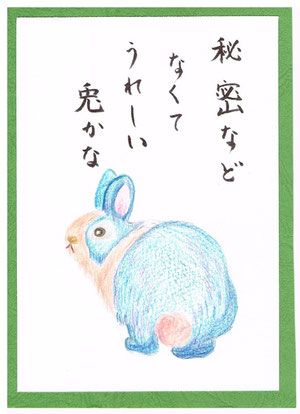 秘密など
なくて
うれしい
兎かな